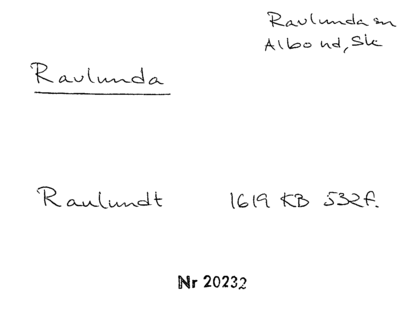 Ravlunda sn
Albo hd, Sk
Ravlunda
Raulundt 1619 KB 532f.
Nr 20232